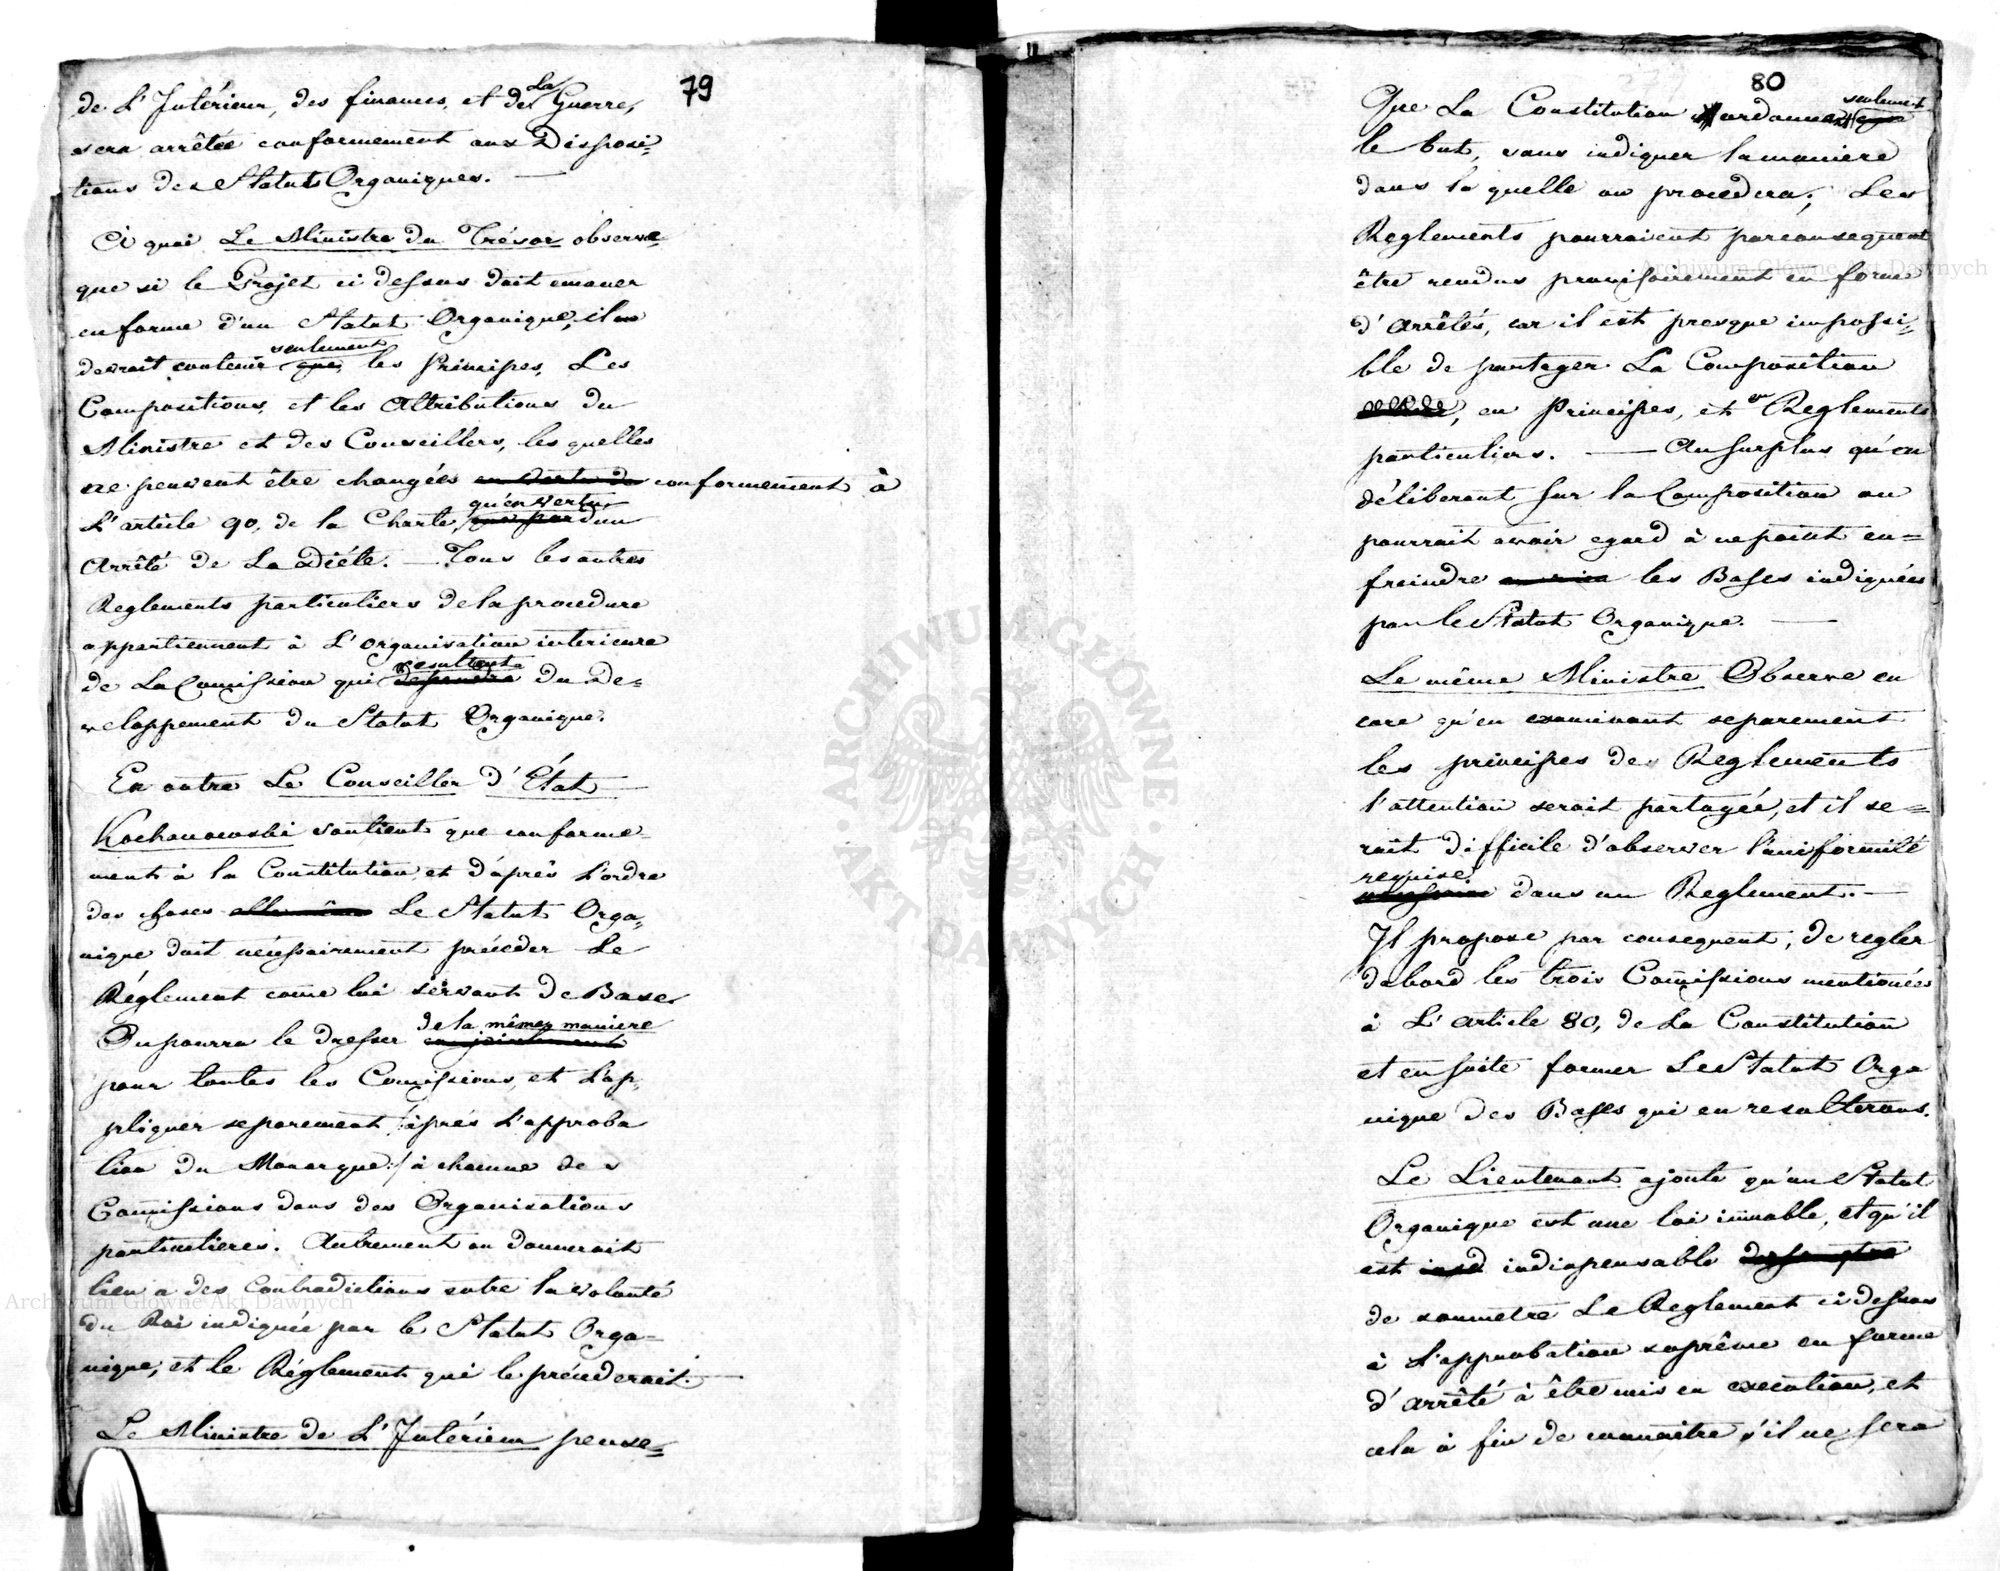 79
de L'Intérieur, des finances, et de la Guerre,
sera arrêtée conformement aux Disposi-
tions des Statuts Organiques. —
A quoi Le Ministre du Trésor observe
que si le Projet ci dessus doit emaner
en forme d'un Statut Organique, il
devroit contenir seulement les Principes, Les
Compositions, et les Attributions du
Ministre et des Conseillers, les quelles
ne peuvent être changées en vertu de conformement à
L'article 90, de la Charte, qu'en vertu d'un
Arrêté de La Diéte. — Tous les autres
Reglements particuliers de la procedure
appartiennent à L'organisation interieure
de La Comission qui resultent du De-
veloppement du Statut Organique.
En outre Le Conseiller d'État
Kochanowski soutient que conforme-
ment à la Constitution et d'aprés L'ordre
des choses elle même Le Statut Orga-
nique doit nécessairement précéder Le
Réglement come lui servant de Base
On pourra le dresser de la même maniere
pour toutes les Comissions, et L'ap-
pliquer separement /:aprés L'approba
tion du Monarque:/ à chacune des
Comissions dans des Organisations
particulieres. Autrement on donnerait
lieu a des Contradictions entre la volonté
du Roi indiquée par le Statut Orga-
nique, et le Réglement qui le précederait. —
Le Ministre de L'Intérieur pense
80
Que La Constitution ordonnant seulement
le but, sans indiquer la maniere
dans la quelle on procedera; Les
Reglements pourraient par consequent
être rendus provisoirement en forme
d'Arrêtés, car il est presque impossi-
ble de partager La Composition
en Principes, et en Reglements
particuliers. — Au surplus qu'en
déliberant sur la Composition on
pourrait avoir egard à ne point en-
freindre les Bases indiquées
par le Statut Organique. —
Le même Ministre Observe en
core qu'en examinant separement
les principes des Reglements
l'attention serait partagée, et il se-
rait difficile d'observer l'uniformité
requise dans un Reglement. —
Il propose par consequent, de regler
dabord les trois Comissions mentionées
à L'Article 80, de La Constitution
et en suite former Le Statut Orga
nique des Bases qui en resulterons.
Le Lieutenant ajoute qu'un Statut
Organique est une loi imuable, et qu'il
est indispensable
de soumetre Le Reglement ci dessus
à L'approbation suprême en forme
d'arrêté à être mis en execution, et
cela à fin de connaitre s'il ne sera
Archiwum Główne Akt Dawnych
Archiwum Główne Akt Dawnych
ARCHIWUM GŁÓWNE · AKT DAWNYCH ·